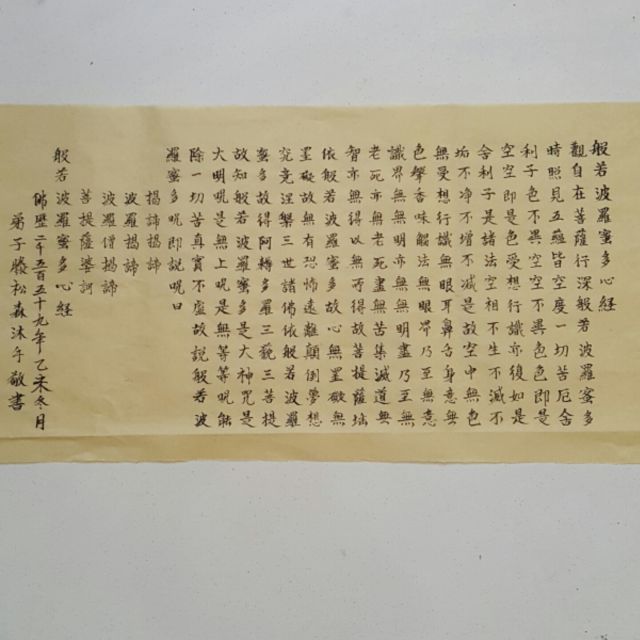 般若波羅蜜多心経
觀自在菩薩行深般若波羅蜜多
時照見五蘊皆空度一切苦厄舍
利子色不異空空不異色色即是
空空即是色受想行識亦復如是
舍利子是諸法空相不生不滅不
垢不净不增不減是故空中無色
無受想行識無眼耳鼻舌身意無
色聲香味觸法無眼界乃至無意
識界無無明亦無無明盡乃至無
老死亦無老死盡無苦集滅道無
智亦無得以無所得故菩提薩埵
依般若波羅蜜多故心無罣礙無
罣礙故無有恐怖遠離顛倒夢想
究竟涅槃三世諸佛依般若波羅
蜜多故得阿耨多羅三藐三菩提
故知般若波羅蜜多是大神咒是
大明呪是無上呪是無等等呪能
除一切苦真實不虛故説般若波
羅蜜多呪即説呪曰
揭諦揭諦
波羅揭諦
波羅僧揭諦
菩提薩婆訶
般若波羅蜜多心経
佛歷二千五百五十九年乙未冬月
弟子松森沐手敬書